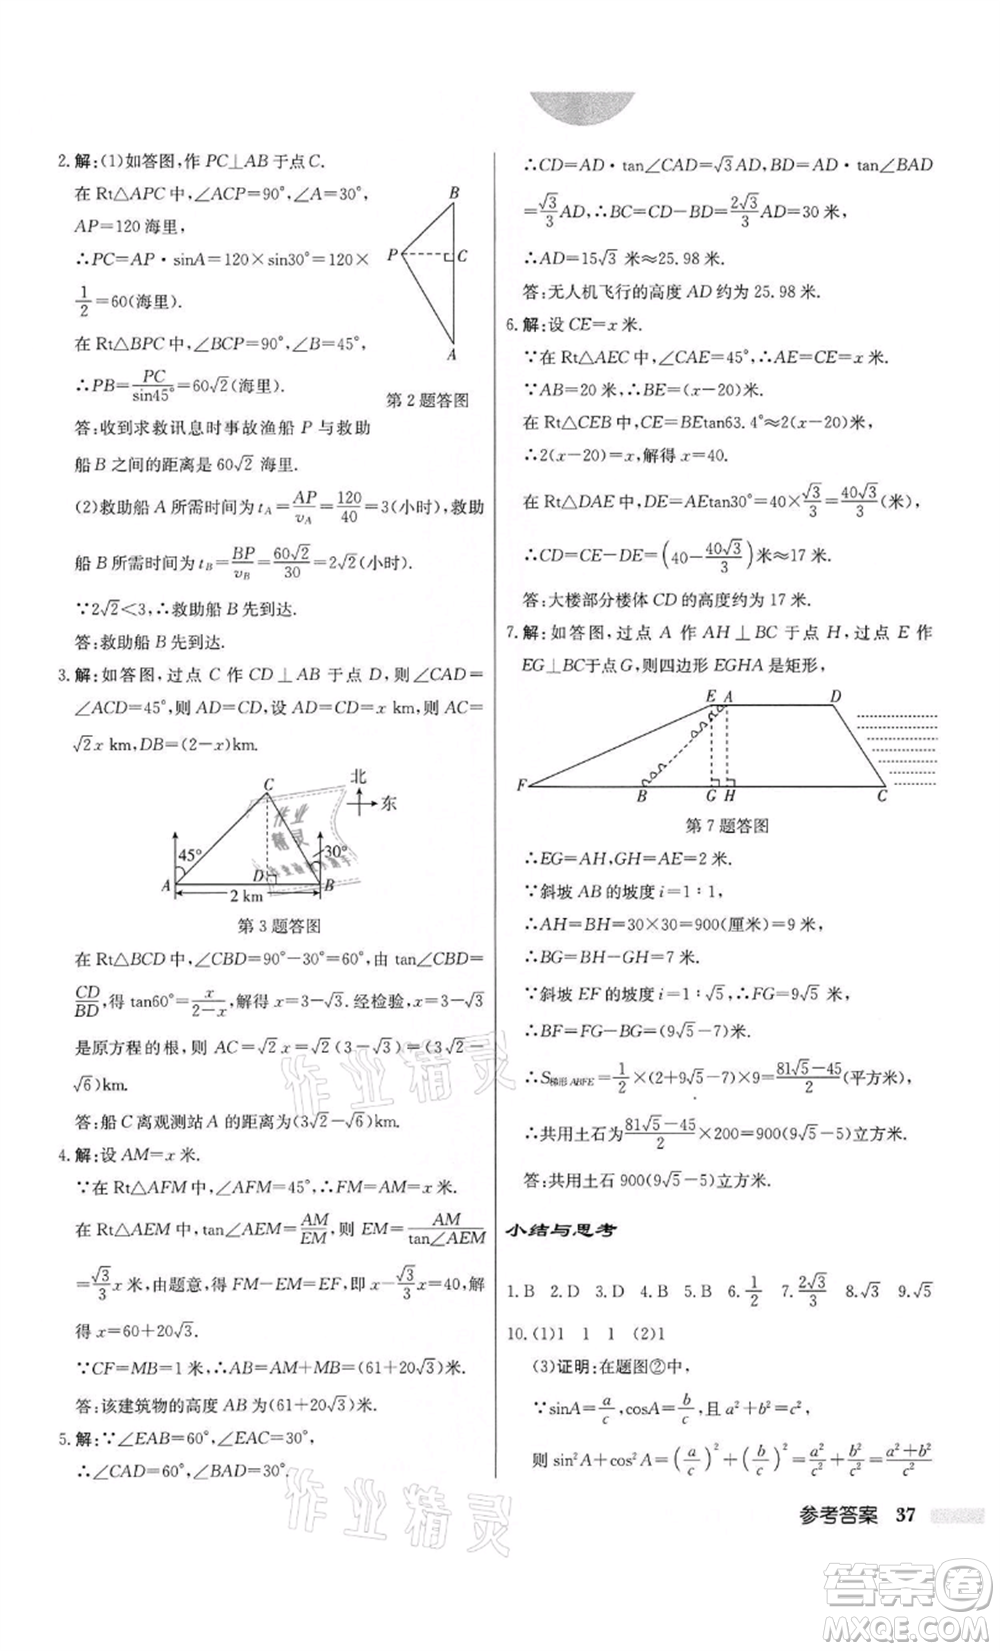 2.解:(1)如答图,作 PC⊥AB 于点C.
在 Rt△APC 中,∠ACP=90°,∠A=30°,
AP=120 海里,
∴PC=AP·sinA=120×sin30°=120×
1/2=60(海里).
在 Rt△BPC 中,∠BCP=90°,∠B=45°,
∴PB=PC/sin45°=60√2(海里).
答:收到求救讯息时事故渔船 P 与救助
船 B 之间的距离是 60√2 海里.
B
P
C
A
第 2 题答图
(2)救助船 A 所需时间为 t_A=AP/v_A=120/40=3(小时),救助
船 B 所需时间为 t_B=BP/v_B=60√2/30=2√2(小时).
∵2√2<3,∴救助船 B 先到达.
答:救助船 B 先到达.
3.解:如答图,过点 C 作 CD⊥AB 于点 D,则∠CAD=
∠ACD=45°,则 AD=CD,设 AD=CD=x km,则 AC=
√2x km,DB=(2-x)km.
北
东
C
45°
30°
A
D
B
2 km
第 3 题答图
在 Rt△BCD 中,∠CBD=90°-30°=60°,由 tan∠CBD=
CD/BD,得 tan60°=x/(2-x),解得 x=3-√3.经检验,x=3-√3
是原方程的根,则 AC=√2x=√2(3-√3)=(3√2-
√6)km.
答:船 C 离观测站 A 的距离为(3√2-√6)km.
4.解:设 AM=x 米.
∵在 Rt△AFM 中,∠AFM=45°,∴FM=AM=x 米.
在 Rt△AEM 中,tan∠AEM=AM/EM,则 EM=AM/tan∠AEM
=√3/3x 米,由题意,得 FM-EM=EF,即 x-√3/3x=40,解
得 x=60+20√3.
∵CF=MB=1 米,∴AB=AM+MB=(61+20√3)米.
答:该建筑物的高度 AB 为(61+20√3)米.
5.解:∵∠EAB=60°,∠EAC=30°,
∴∠CAD=60°,∠BAD=30°.
∴CD=AD·tan∠CAD=√3AD,BD=AD·tan∠BAD
=√3/3AD,∴BC=CD-BD=2√3/3AD=30 米,
∴AD=15√3 米≈25.98 米.
答:无人机飞行的高度 AD 约为 25.98 米.
6.解:设 CE=x 米.
∵在 Rt△AEC 中,∠CAE=45°,∴AE=CE=x 米.
∵AB=20 米,∴BE=(x-20)米.
在 Rt△CEB 中,CE=BEtan63.4°≈2(x-20)米,
∴2(x-20)=x,解得 x=40.
在 Rt△DAE 中,DE=AEtan30°=40×√3/3=40√3/3(米),
∴CD=CE-DE=(40-40√3/3)米≈17 米.
答:大楼部分楼体 CD 的高度约为 17 米.
7.解:如答图,过点 A 作 AH⊥BC 于点 H,过点 E 作
EG⊥BC于点G,则四边形 EGHA 是矩形,
E A D
F B G H C
第 7 题答图
∴EG=AH,GH=AE=2 米.
∵斜坡 AB 的坡度 i=1∶1,
∴AH=BH=30×30=900(厘米)=9 米,
∴BG=BH-GH=7 米.
∵斜坡 EF 的坡度 i=1∶√5,∴FG=9√5 米,
∴BF=FG-BG=(9√5-7)米.
∴S梯形ABFE=1/2×(2+9√5-7)×9=(81√5-45)/2(平方米),
∴共用土石为(81√5-45)/2×200=900(9√5-5)立方米.
答:共用土石 900(9√5-5)立方米.
小结与思考
1.B 2.D 3.D 4.B 5.B 6.1/2 7.2√3/3 8.√3 9.√5
10.(1)1 1 1 (2)1
(3)证明:在题图②中,
∵sinA=a/c,cosA=b/c,且 a²+b²=c²,
则 sin²A+cos²A=(a/c)²+(b/c)²=a²/c²+b²/c²=(a²+b²)/c²
参考答案 37
作业精灵
作业精灵
作业精灵
答案圈
MXQE.COM